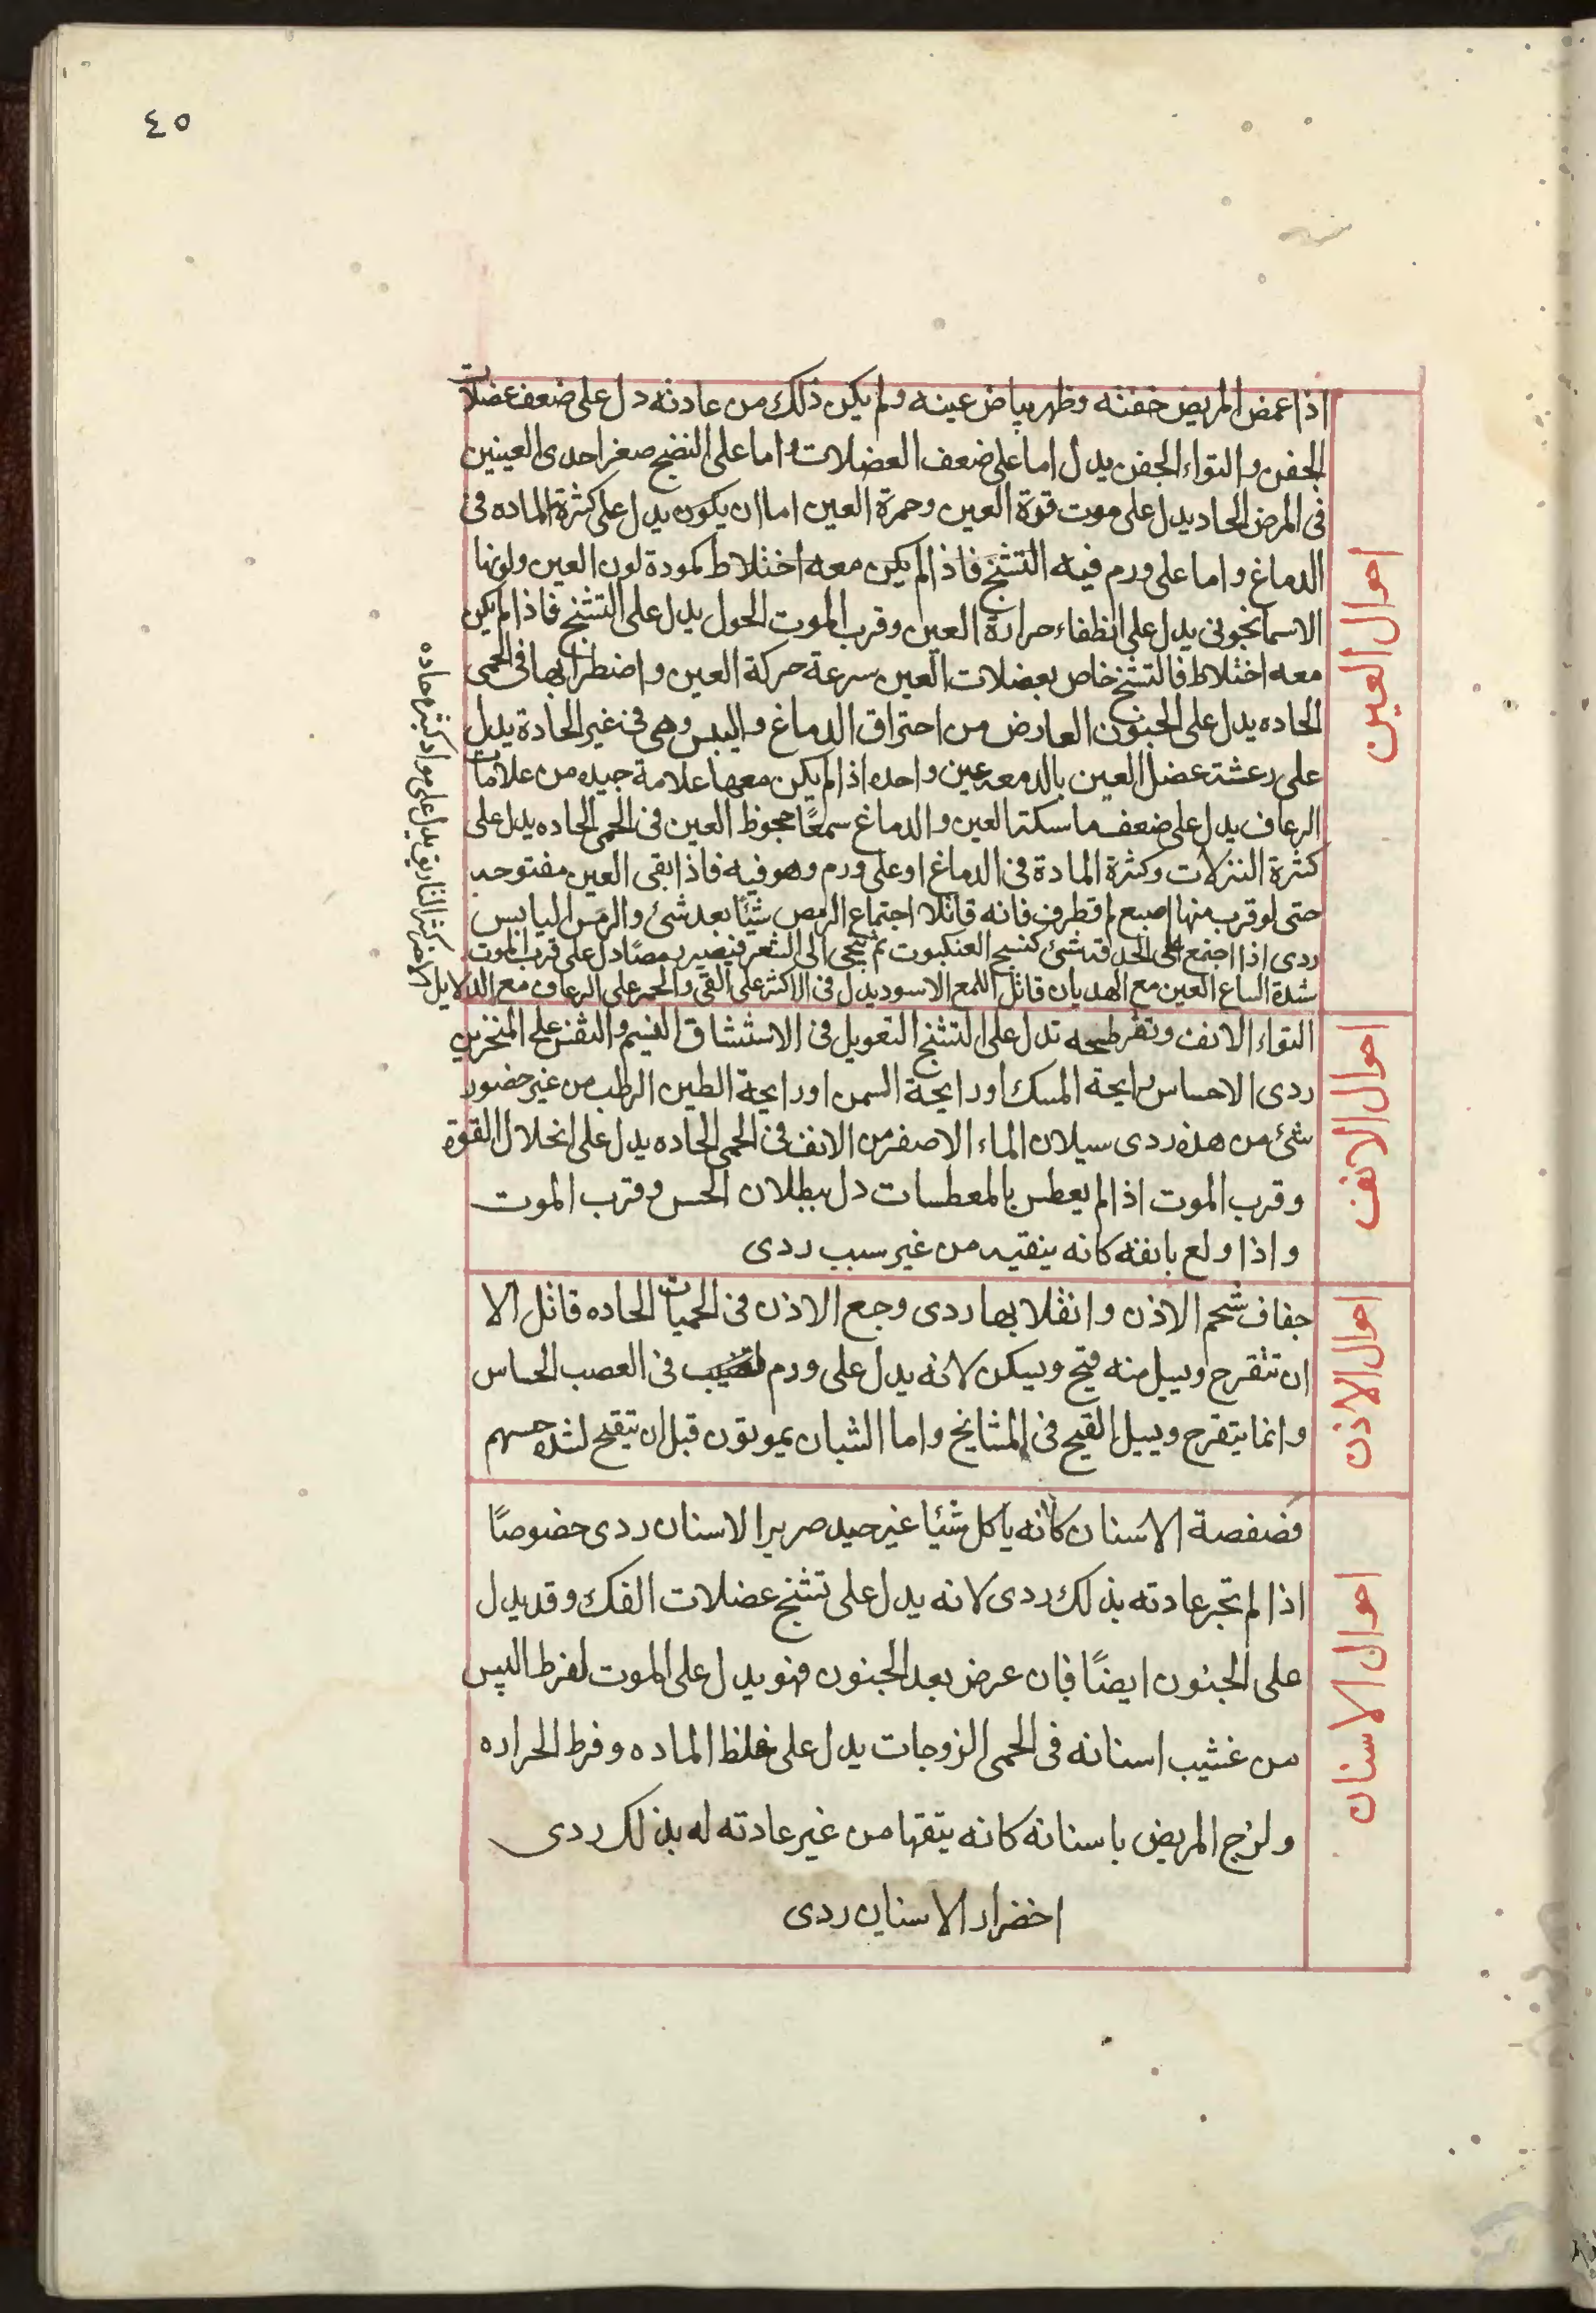 ٤٥
احوال العين
اذا غمض المريض جفنه وظهر بياض عينه ولم يكن ذلك من عادته دل على ضعف عضلات
الجفن والتواء الجفن يدل اما على ضعف العضلات واما على النضج صغر احدى العينين
فى المرض الحاد يدل على موت قوة العين وحمرة العين اما ان يكون يدل على كثرة الماده فى
الدماغ واما على ورم فيه التشنج فاذا لم يكن معه اختلاط كمودة لون العين ولونها
الاسمانجونى يدل على انطفاء حرارة العين وقرب الموت الحول يدل على التشنج فاذا لم يكن
معه اختلاط فالتشنج خاص بعضلات العين سرعة حركة العين واضطرابها فى الحمى
الحاده يدل على الجنون العارض من احتراق الدماغ واليبس وهى فى غير الحادة يدل
على رعشة عضل العين بالدمعه عين واحده اذا لم يكن معها علامة جيده من علامات
الرعاف يدل على ضعف ماسكة العين والدماغ سمعًا جحوظ العين فى الحمى الحاده يدل على
كثرة النزلات وكثرة المادة فى الدماغ او على ورم وهو فيه فاذا بقى العين مفتوحه
حتى لو قرب منها اصبع لم تطرف فانه قاتلا اجتماع الرمص شيئًا بعد شئ والرمص اليابس
ردى اذا اجتمع على الحدقة شئ كنسج العنكبوت ثم يجى الى الشعر فيصير رمصًا دل على قرب الموت
شدة اتساع العين مع الهديان قاتل اللمع الاسود يدل فى الاكثر على القى والحمر على الرعاف مع الدلايل الاخر
يدل على مواد كثيره حاده
احوال الانف
التواء الانف وتفرطحه تدل على التشنج التعويل فى الاستنشاق النسيم والتنفس على المنخرين
ردى الاحساس برايحة المسك او رايحة السمن او رايحة الطين الرطب من غير حضور
شئ من هذه ردى سيلان الماء الاصفر من الانف فى الحمى الحاده يدل على انحلال القوة
وقرب الموت اذا لم يعطس بالمعطسات دل ببطلان الحس وقرب الموت
واذا ولع بانفه كانه ينقيه من غير سبب ردى
احوال الاذن
جفاف شحم الاذن وانقلابها ردى وجع الاذن فى الحميات الحاده قاتل الا
ان تتقرح ويسيل منه قيح ويسكن لانه يدل على ورم فى العصب الحساس
وانما يتقرح ويسيل القيح فى المشايخ واما الشبان يموتون قبل ان يتقيح لشدة حسهم
احوال الاسنان
قضقضة الاسنان كانه ياكل شيئا غير جيد صرير الاسنان ردى خصوصًا
اذا لم تجر عادته بذلك ردى لانه يدل على تشنج عضلات الفك وقد يدل
على الجنون ايضًا فان عرض بعد الجنون فهو يدل على الموت لفرط اليبس
من غشيب اسنانه فى الحمى الزوجات يدل على غلظ الماده وفرط الحراره
ولزج المريض باسنانه كانه ينقها من غير عادته له بذلك ردى
اخضرار الاسنان ردى